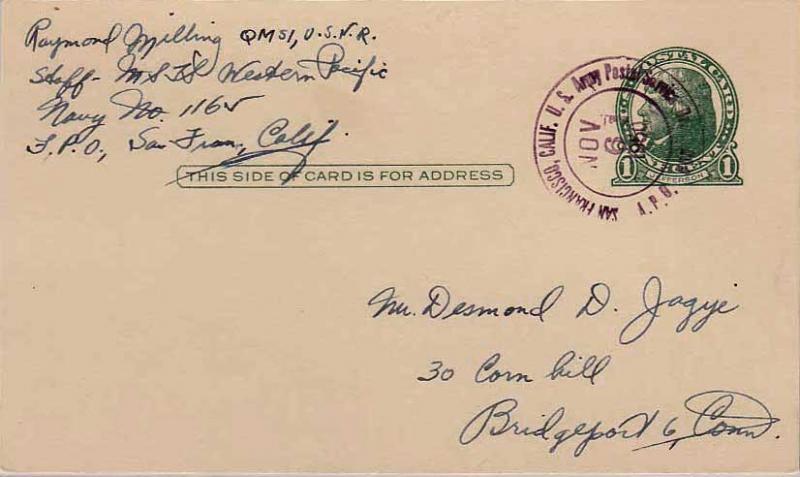 Raymond Milling QMS1, U.S.N.R.
Staff - MSTS Western Pacific
Navy No. 1165
F.P.O., San Fran., Calif.
THIS SIDE OF CARD IS FOR ADDRESS
U. S. Army Postal Service
A.P.O.
SAN FRANCISCO, CALIF.
NOV
1 1
JEFFERSON
Mr. Desmond D. Jagyi
30 Corn hill
Bridgeport 6, Conn.